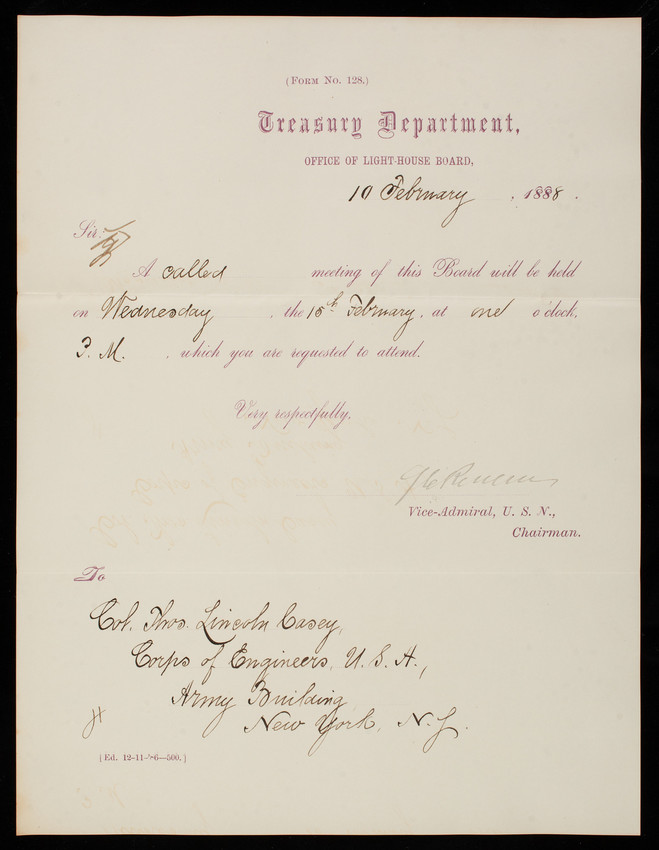 (Form No. 128.)
Treasury Department,
OFFICE OF LIGHT-HOUSE BOARD,
10 February, 1888.
Sir:
A called meeting of this Board will be held
on Wednesday, the 15th February, at one o'clock,
P. M., which you are requested to attend.
Very respectfully,
Vice-Admiral, U. S. N.,
Chairman.
To
Col. Thos. Lincoln Casey,
Corps of Engineers, U. S. A.,
Army Building
New York, N. Y.
[Ed. 12-11-'86—500.]